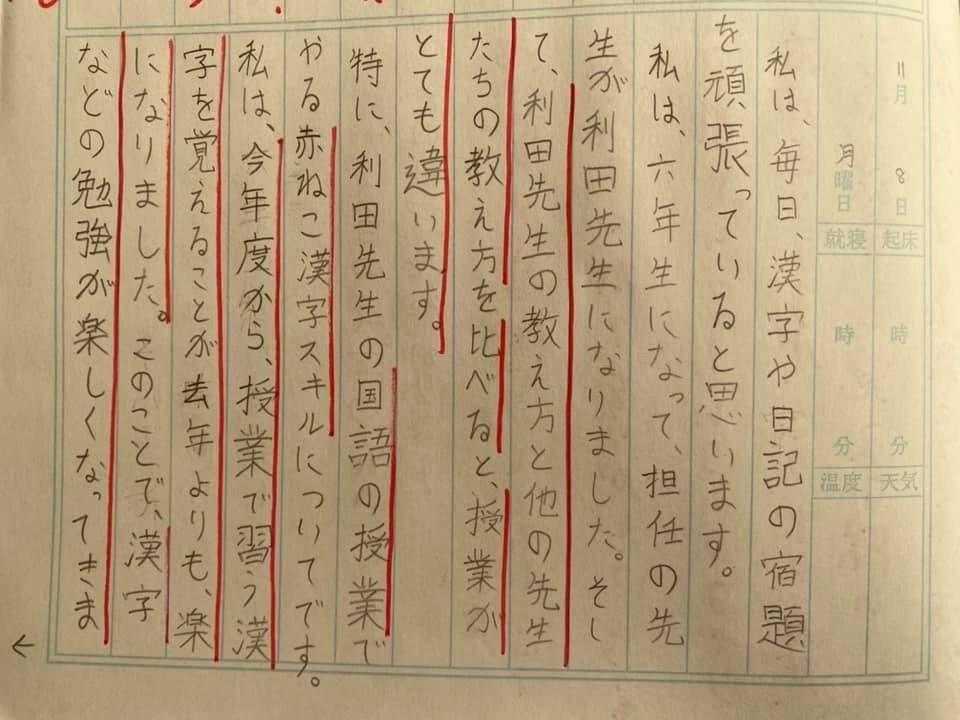 11月8日
起床 時 分
天気
月曜日
就寝 時 分
温度
私は、毎日、漢字や日記の宿題
を頑張っていると思います。
私は、六年生になって、担任の先
生が利田先生になりました。そし
て、利田先生の教え方と他の先生
たちの教え方を比べると、授業が
とても違います。
特に、利田先生の国語の授業で
やる赤ねこ漢字スキルについてです。
私は、今年度から、授業で習う漢
字を覚えることが去年よりも、楽
になりました。このことで、漢字
などの勉強が楽しくなってきま
←